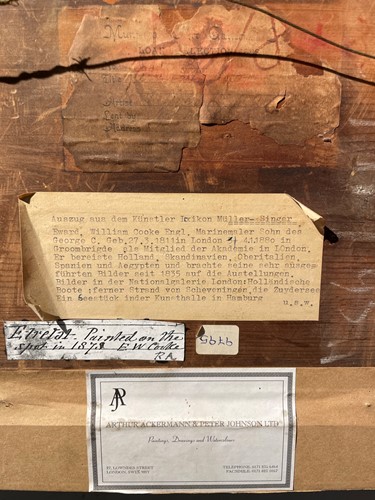 LOAN COLLECTION
Artist
Lent by
Auszug aus dem Künstler Lexikon Müller-Singer
Eward, William Cooke Engl. Marinemaler Sohn des
George C, Geb, 27.3.1811in London 4.1.1880 in
Groombrigde Mitglied der Akademie in London.
Er bereiste Holland, Skandinavien, Oberitalien,
Spanien und Aegypten und brachte seine sehr
führten Bilder seit 1835 auf die Austellungen.
Bilder in der Nationalgalerie London:Holländische
Boote ;ferner Strand von Scheveningen, die Zuydersee
Ein Seestück inder Kunsthalle in Hamburg
u.s.w.
Etretat. Painted on the
spot in 1873 E.W Cooke
RA
9795
ARTHUR ACKERMANN & PETER JOHNSON LTD
Paintings, Drawings and Watercolours
27, LOWNDES STREET
LONDON, SW1X 9HY
TELEPHONE:
FACSIMILE: